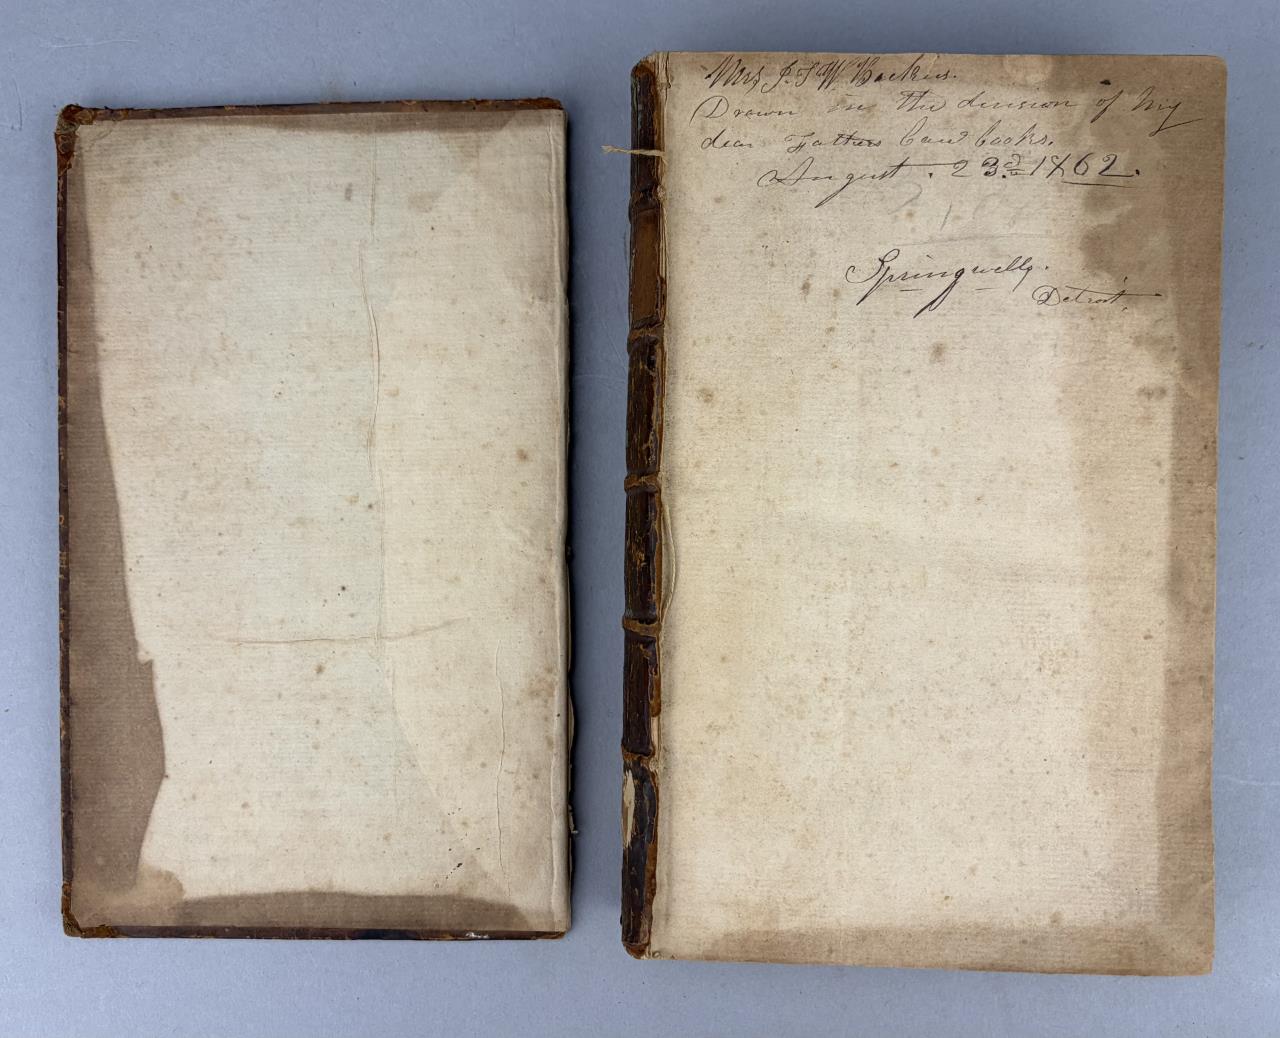 Mrs J. T W Backus.
Drawn in the division of My
dear Fathers Law books.
August. 23d 1862.
Springwells.
Detroit.